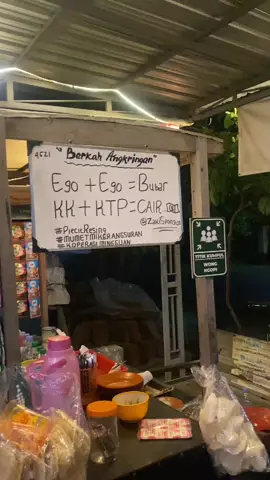 4621 "Berkah Angkringan"
Ego + Ego = Bubar
KK + KTP = CAIR
@ZakiSponsor
#PiciuResing
#MUMETMIKERANGSURAN
#KOPERASIMINGGUAN
TITIK KUMPUL
WONG
NGOPI